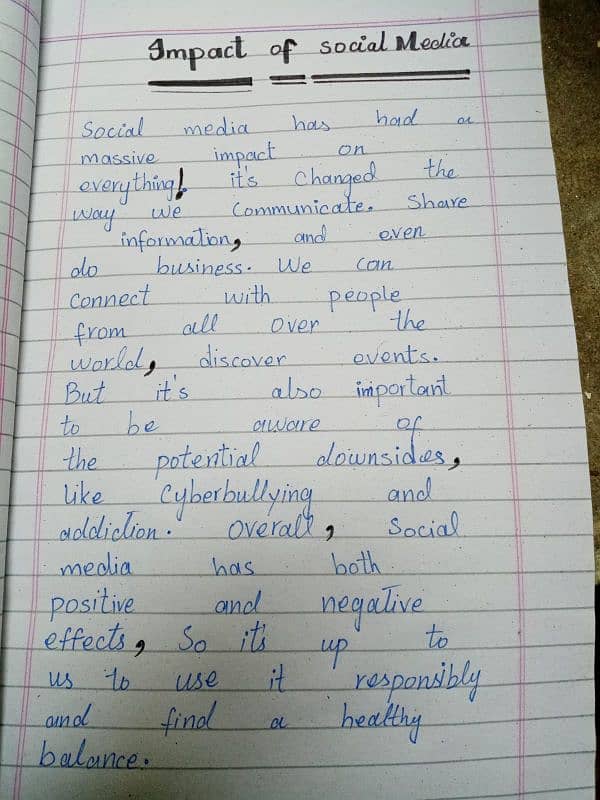 Impact of social Media
Social media has had a
massive impact on
everything! it's changed the
way we communicate. Share
information, and even
do business. We can
connect with people
from all over the
world, discover events.
But it's also important
to be aware of
the potential downsides,
like Cyberbullying and
addiction. Overall, Social
media has both
positive and negative
effects, So it's up to
us to use it responsibly
and find a healthy
balance.